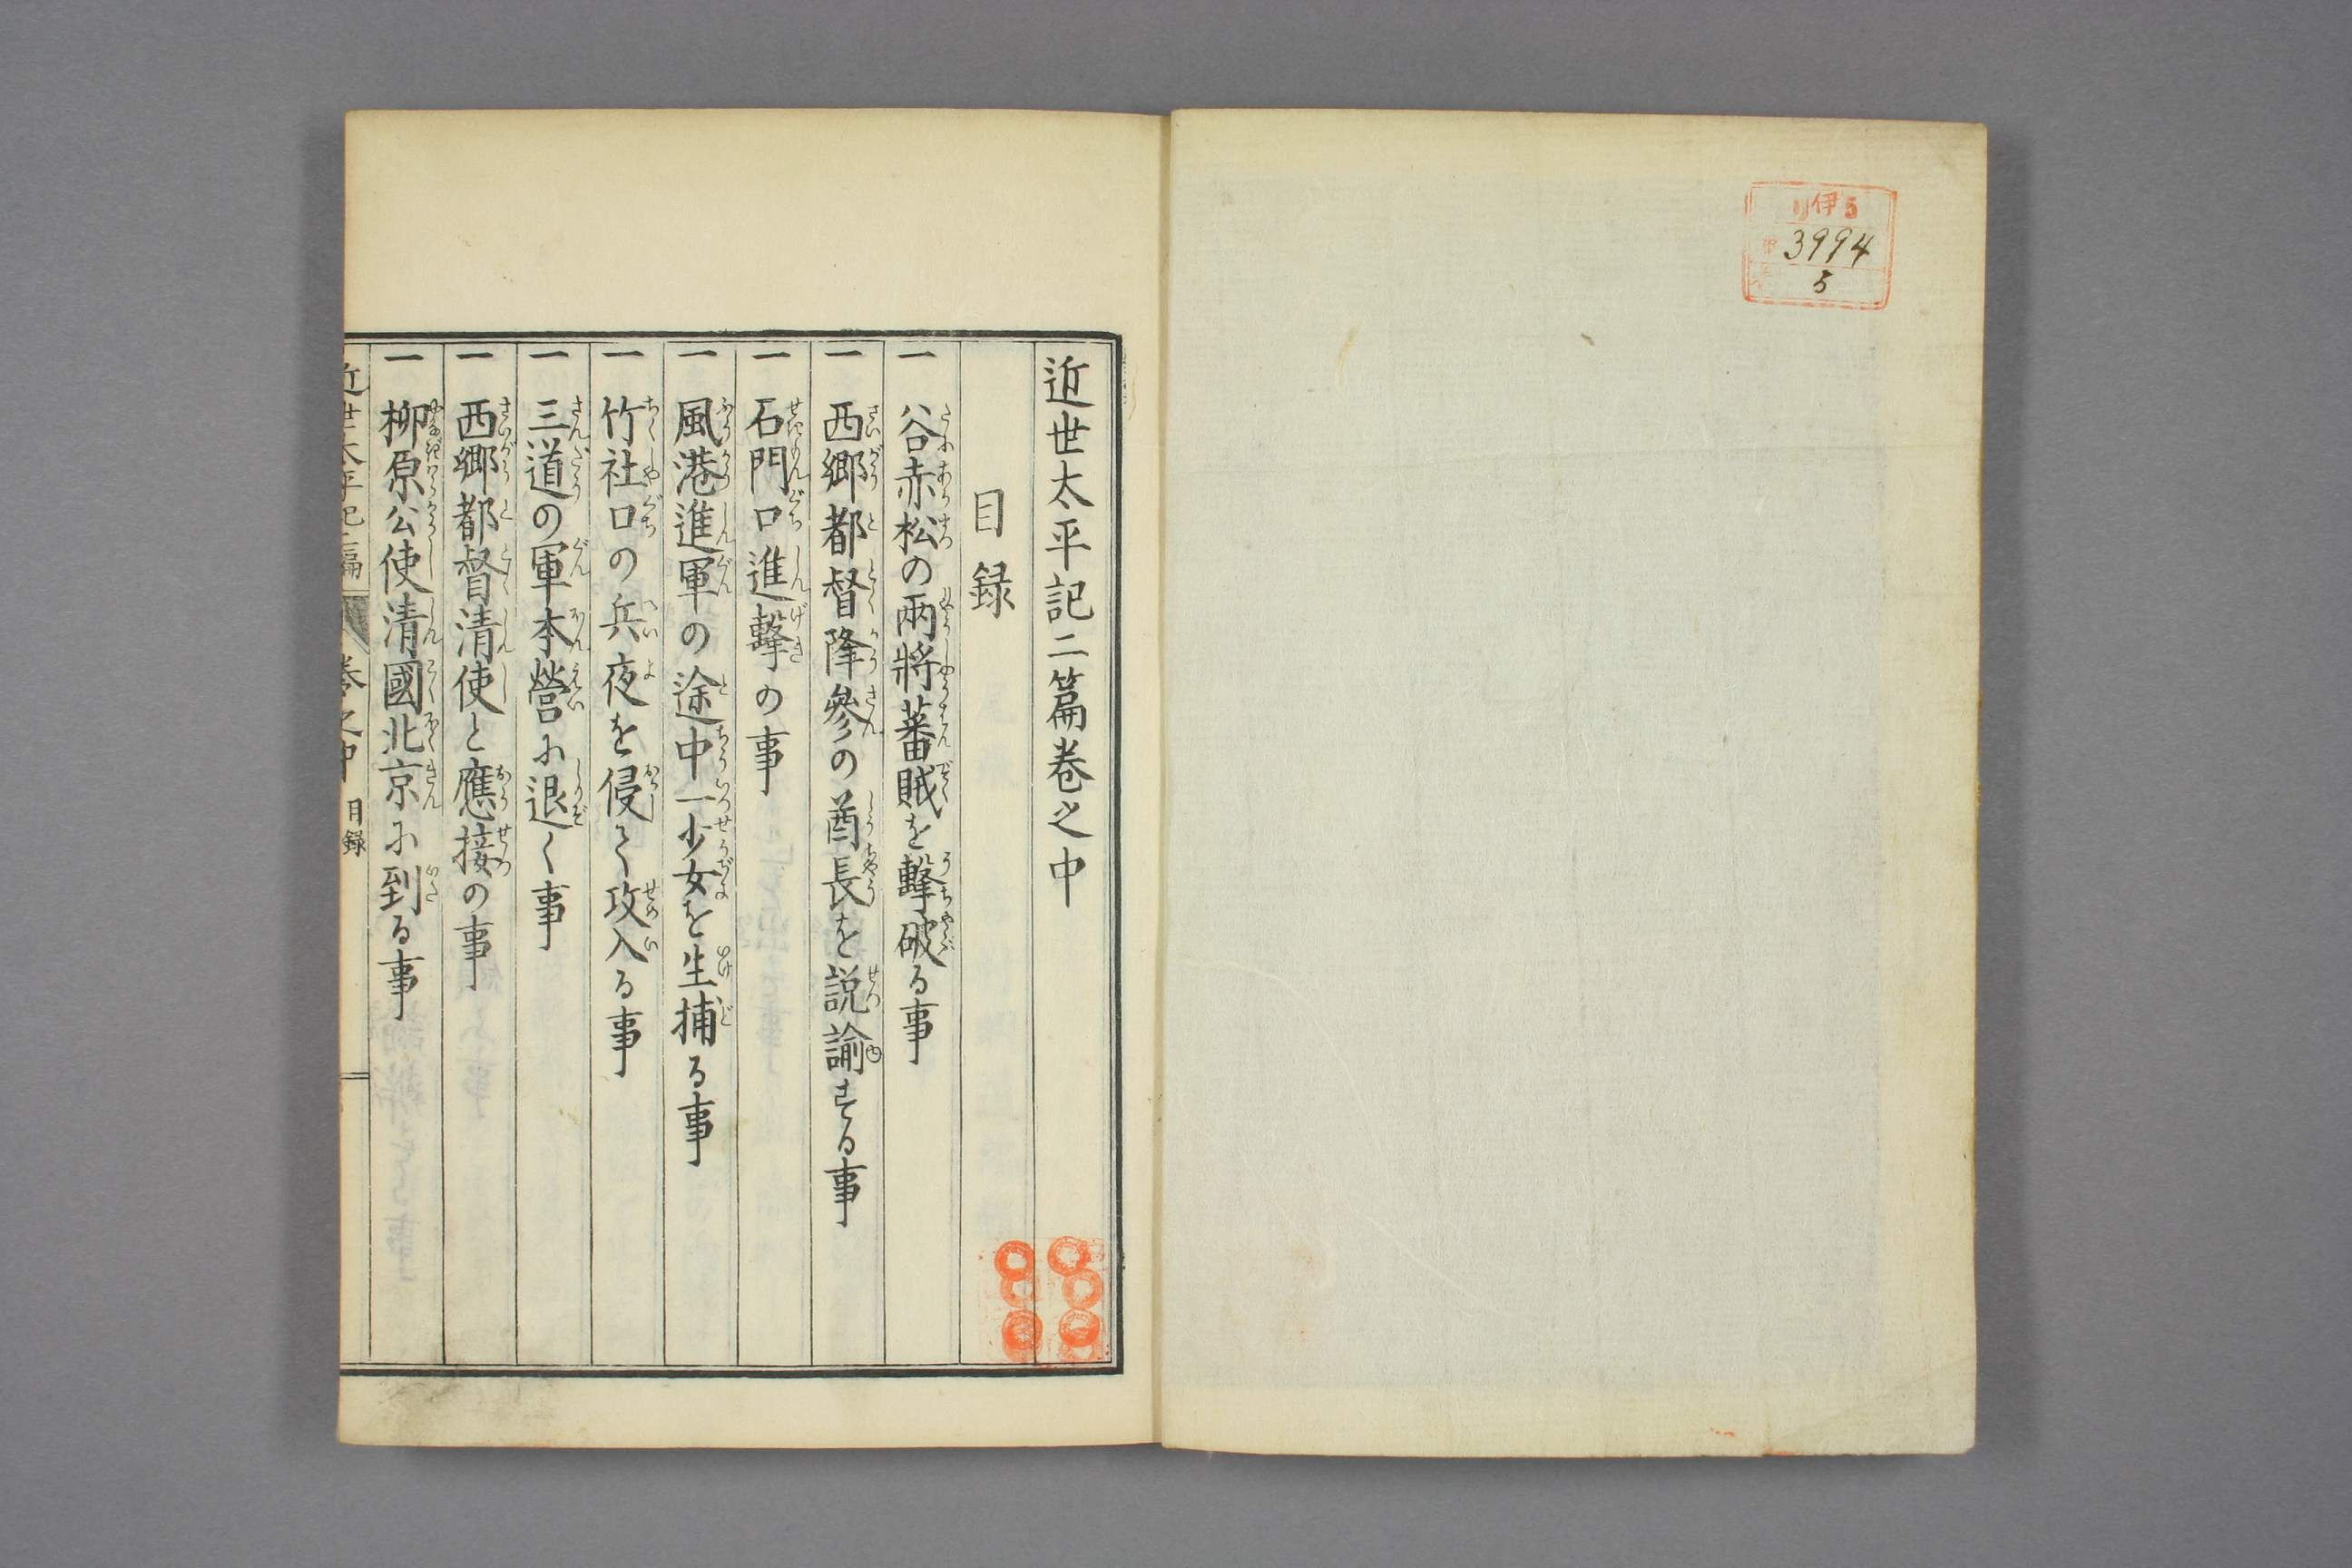 伊5
3994
5
近世太平記二篇卷之中
目録
一 谷赤松の兩將蕃賊を擊破る事
一 西郷都督降參の酋長を説諭する事
一 石門口進擊の事
一 風港進軍の途中一少女を生捕る事
一 竹社口の兵夜を侵して攻入る事
一 三道の軍本營に退く事
一 西郷都督清使と應接の事
一 柳原公使清國北京に到る事
近世太平記二編 卷之中 目録